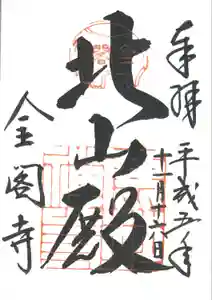 奉拝
平成五年
十一月十六日
北山殿
金閣寺